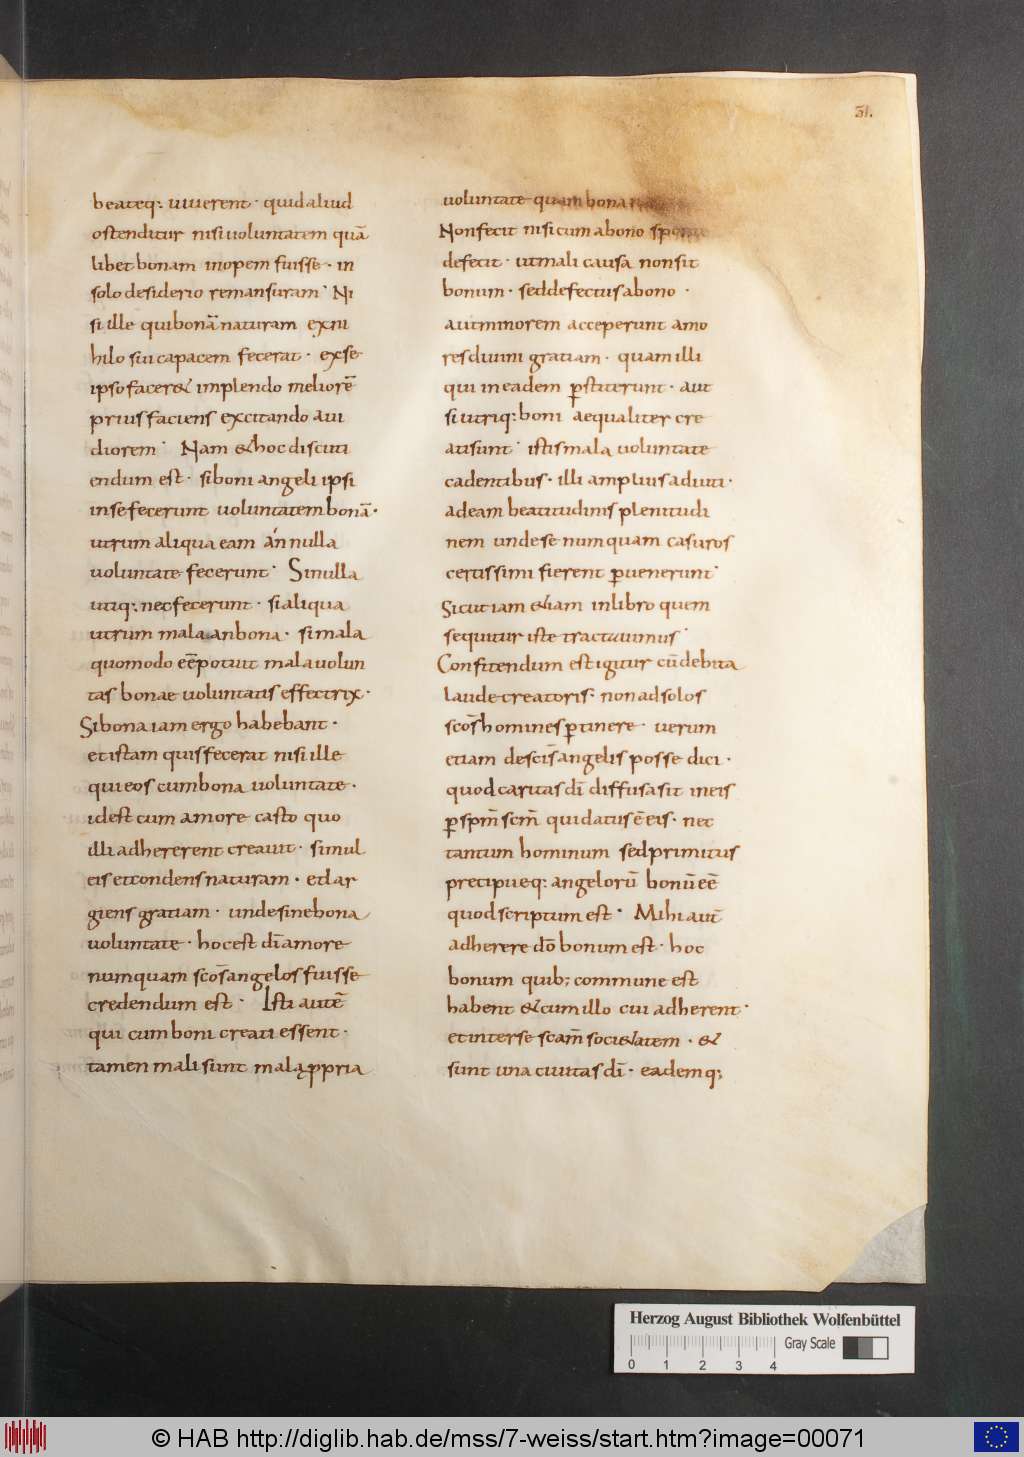 31.
beateq; uiuerent · quid aliud
ostenditur nisi uoluntatem quā
libet bonam inopem fuisse · in
solo desiderio remansuram · Ni
si ille qui bonā naturam ex ni
hilo sui capacem fecerat · ex se
ipso facer& implendo meliorē
prius faciens excitando aui
diorem · Nam & hoc discuti
endum est · si boni angeli ipsi
in se fecerunt uoluntatem bonā ·
utrum aliqua eam án nulla
uoluntate fecerunt · Si nulla
utiq; nec fecerunt · si aliqua
utrum mala an bona · si mala
quomodo eē potuit mala uolun
tas bonae uoluntatis effectrix ·
Si bona iam ergo habebant ·
et istam quis fecerat nisi ille
qui eos cum bona uoluntate ·
id est cum amore casto quo
illi adhererent creauit · simul
eis et condens naturam · et lar
giens gratiam · unde sine bona
uoluntate · hoc est dī amore
numquam scōs angelos fuisse
credendum est · Isti autē
qui cum boni creati essent ·
tamen mali sunt mala ꝓpria
uoluntate quam bona
Non fecit nisi cum a bono
defecit · ut mali causa non sit
bonum · sed defectus a bono ·
aut minorem acceperunt amo
ris diuini gratiam · quam illi
qui in eadem ꝑstiterunt · aut
si utriq; boni aequaliter cre
ati sunt · istis mala uoluntate
cadentibus · illi amplius adiuti ·
ad eam beatitudinis plenitudi
nem unde se numquam casuros
certissimi fierent ꝑuenerunt ·
Sicut iam &iam in libro quem
sequitur iste tractauimus ·
Confitendum est igitur cū debita
laude creatoris · non ad solos
scōs homines ꝑtinere · uerum
etiam de scīs angelis posse dici ·
quod caritas dī diffusa sit in eis
ꝑ spm̄ scm̄ qui datus ē eis · nec
tantum hominum sed primitus
precipueq; angelorū bonū eē
quod scriptum est · Mihi aut̄
adherere dō bonum est · hoc
bonum quib; commune est
habent & cum illo cui adherent ·
et inter se scam̄ soci&atem · &
sunt una ciuitas dī · eademq;
Herzog August Bibliothek Wolfenbüttel
Gray Scale
0 1 2 3 4
© HAB http://diglib.hab.de/mss/7-weiss/start.htm?image=00071